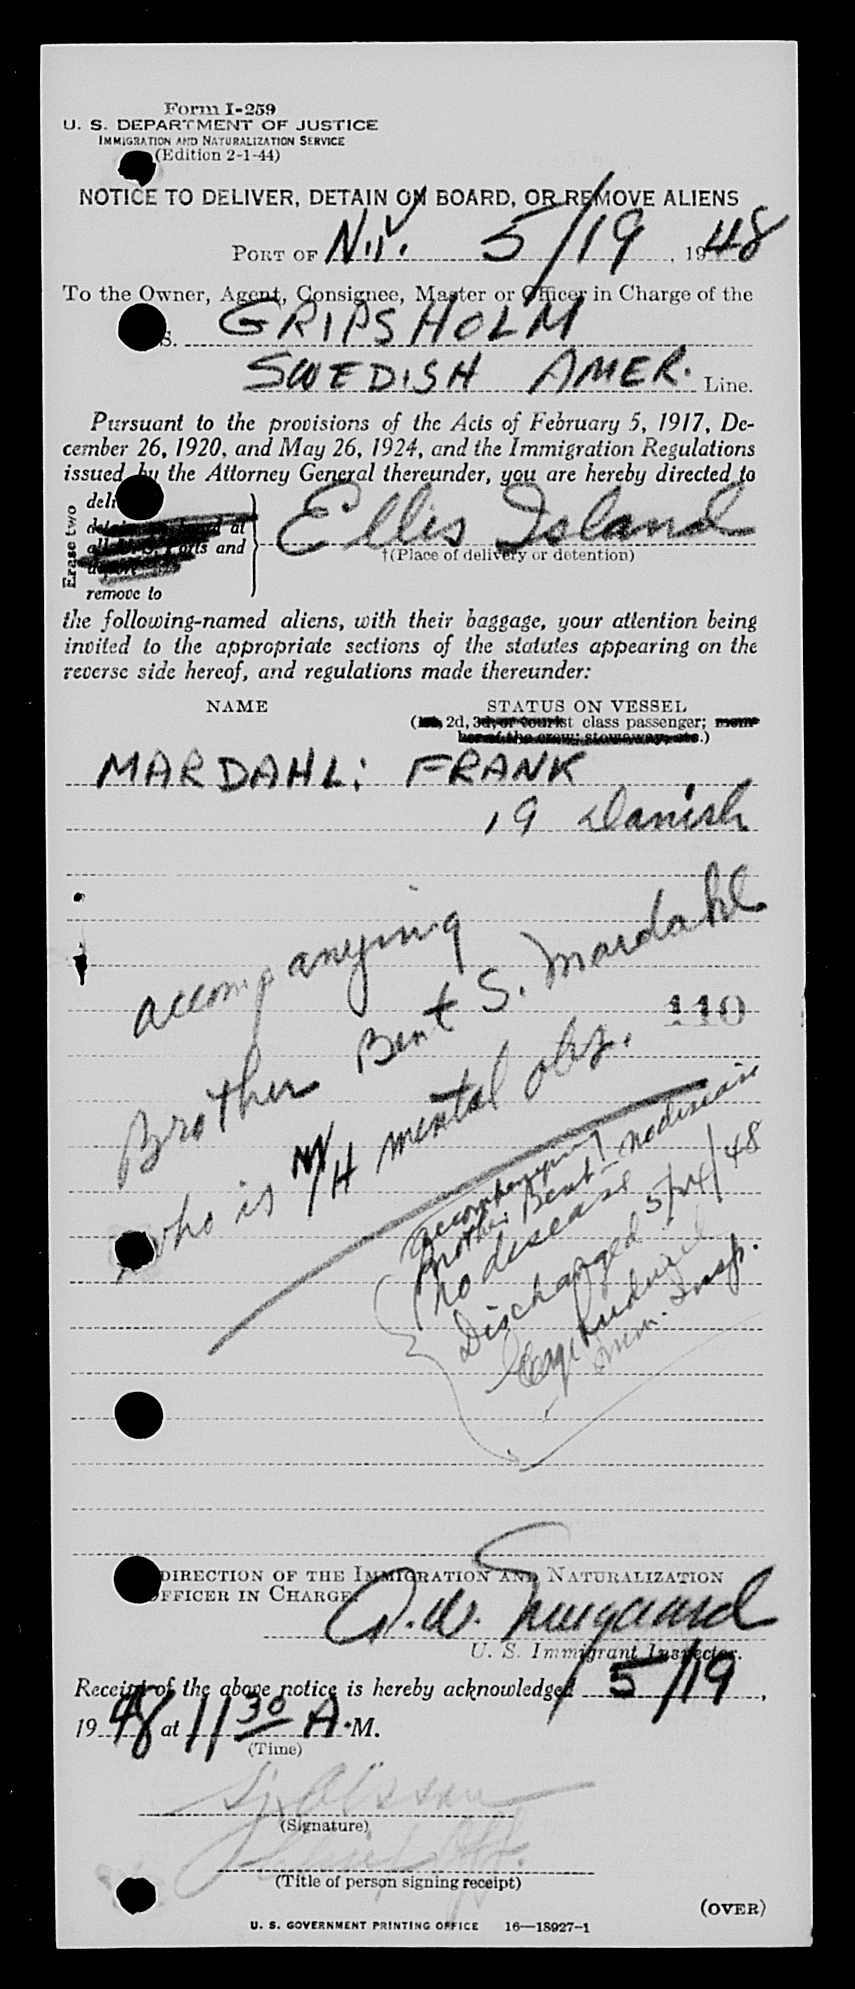 Form I-259
U. S. DEPARTMENT OF JUSTICE
IMMIGRATION AND NATURALIZATION SERVICE
(Edition 2-1-44)
NOTICE TO DELIVER, DETAIN ON BOARD, OR REMOVE ALIENS
PORT OF N.Y. 5/19, 1948
To the Owner, Agent, Consignee, Master or Officer in Charge of the
S. GRIPSHOLM
SWEDISH AMER. Line.
Pursuant to the provisions of the Acts of February 5, 1917, De-
cember 26, 1920, and May 26, 1924, and the Immigration Regulations
issued by the Attorney General thereunder, you are hereby directed to
Erase two
remove to
Ellis Island
†(Place of delivery or detention)
the following-named aliens, with their baggage, your attention being
invited to the appropriate sections of the statutes appearing on the
reverse side hereof, and regulations made thereunder:
NAME STATUS ON VESSEL
(1st, 2d, 3d, or tourist class passenger; mem-
ber of the crew; stowaway, etc.)
MARDAHL: FRANK
19 Danish
accompanying
Brother Bent S. Mardahl
110
who is NY/H mental obs.
accompanying
Brother Bent no disease
no disease
Discharged 5/24/48
Imm. Insp.
DIRECTION OF THE IMMIGRATION AND NATURALIZATION
OFFICER IN CHARGE.
U. S. Immigrant Inspector.
Receipt of the above notice is hereby acknowledged 5/19,
1948 at 11 30 A.M.
(Time)
Olsson
(Signature)
(Title of person signing receipt)
(OVER)
U. S. GOVERNMENT PRINTING OFFICE 16—18927-1